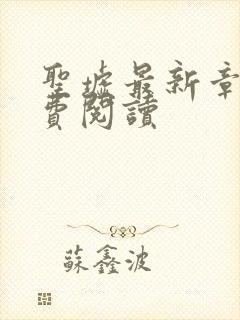 聖墟最新章
費閱讀
蘇鑫波